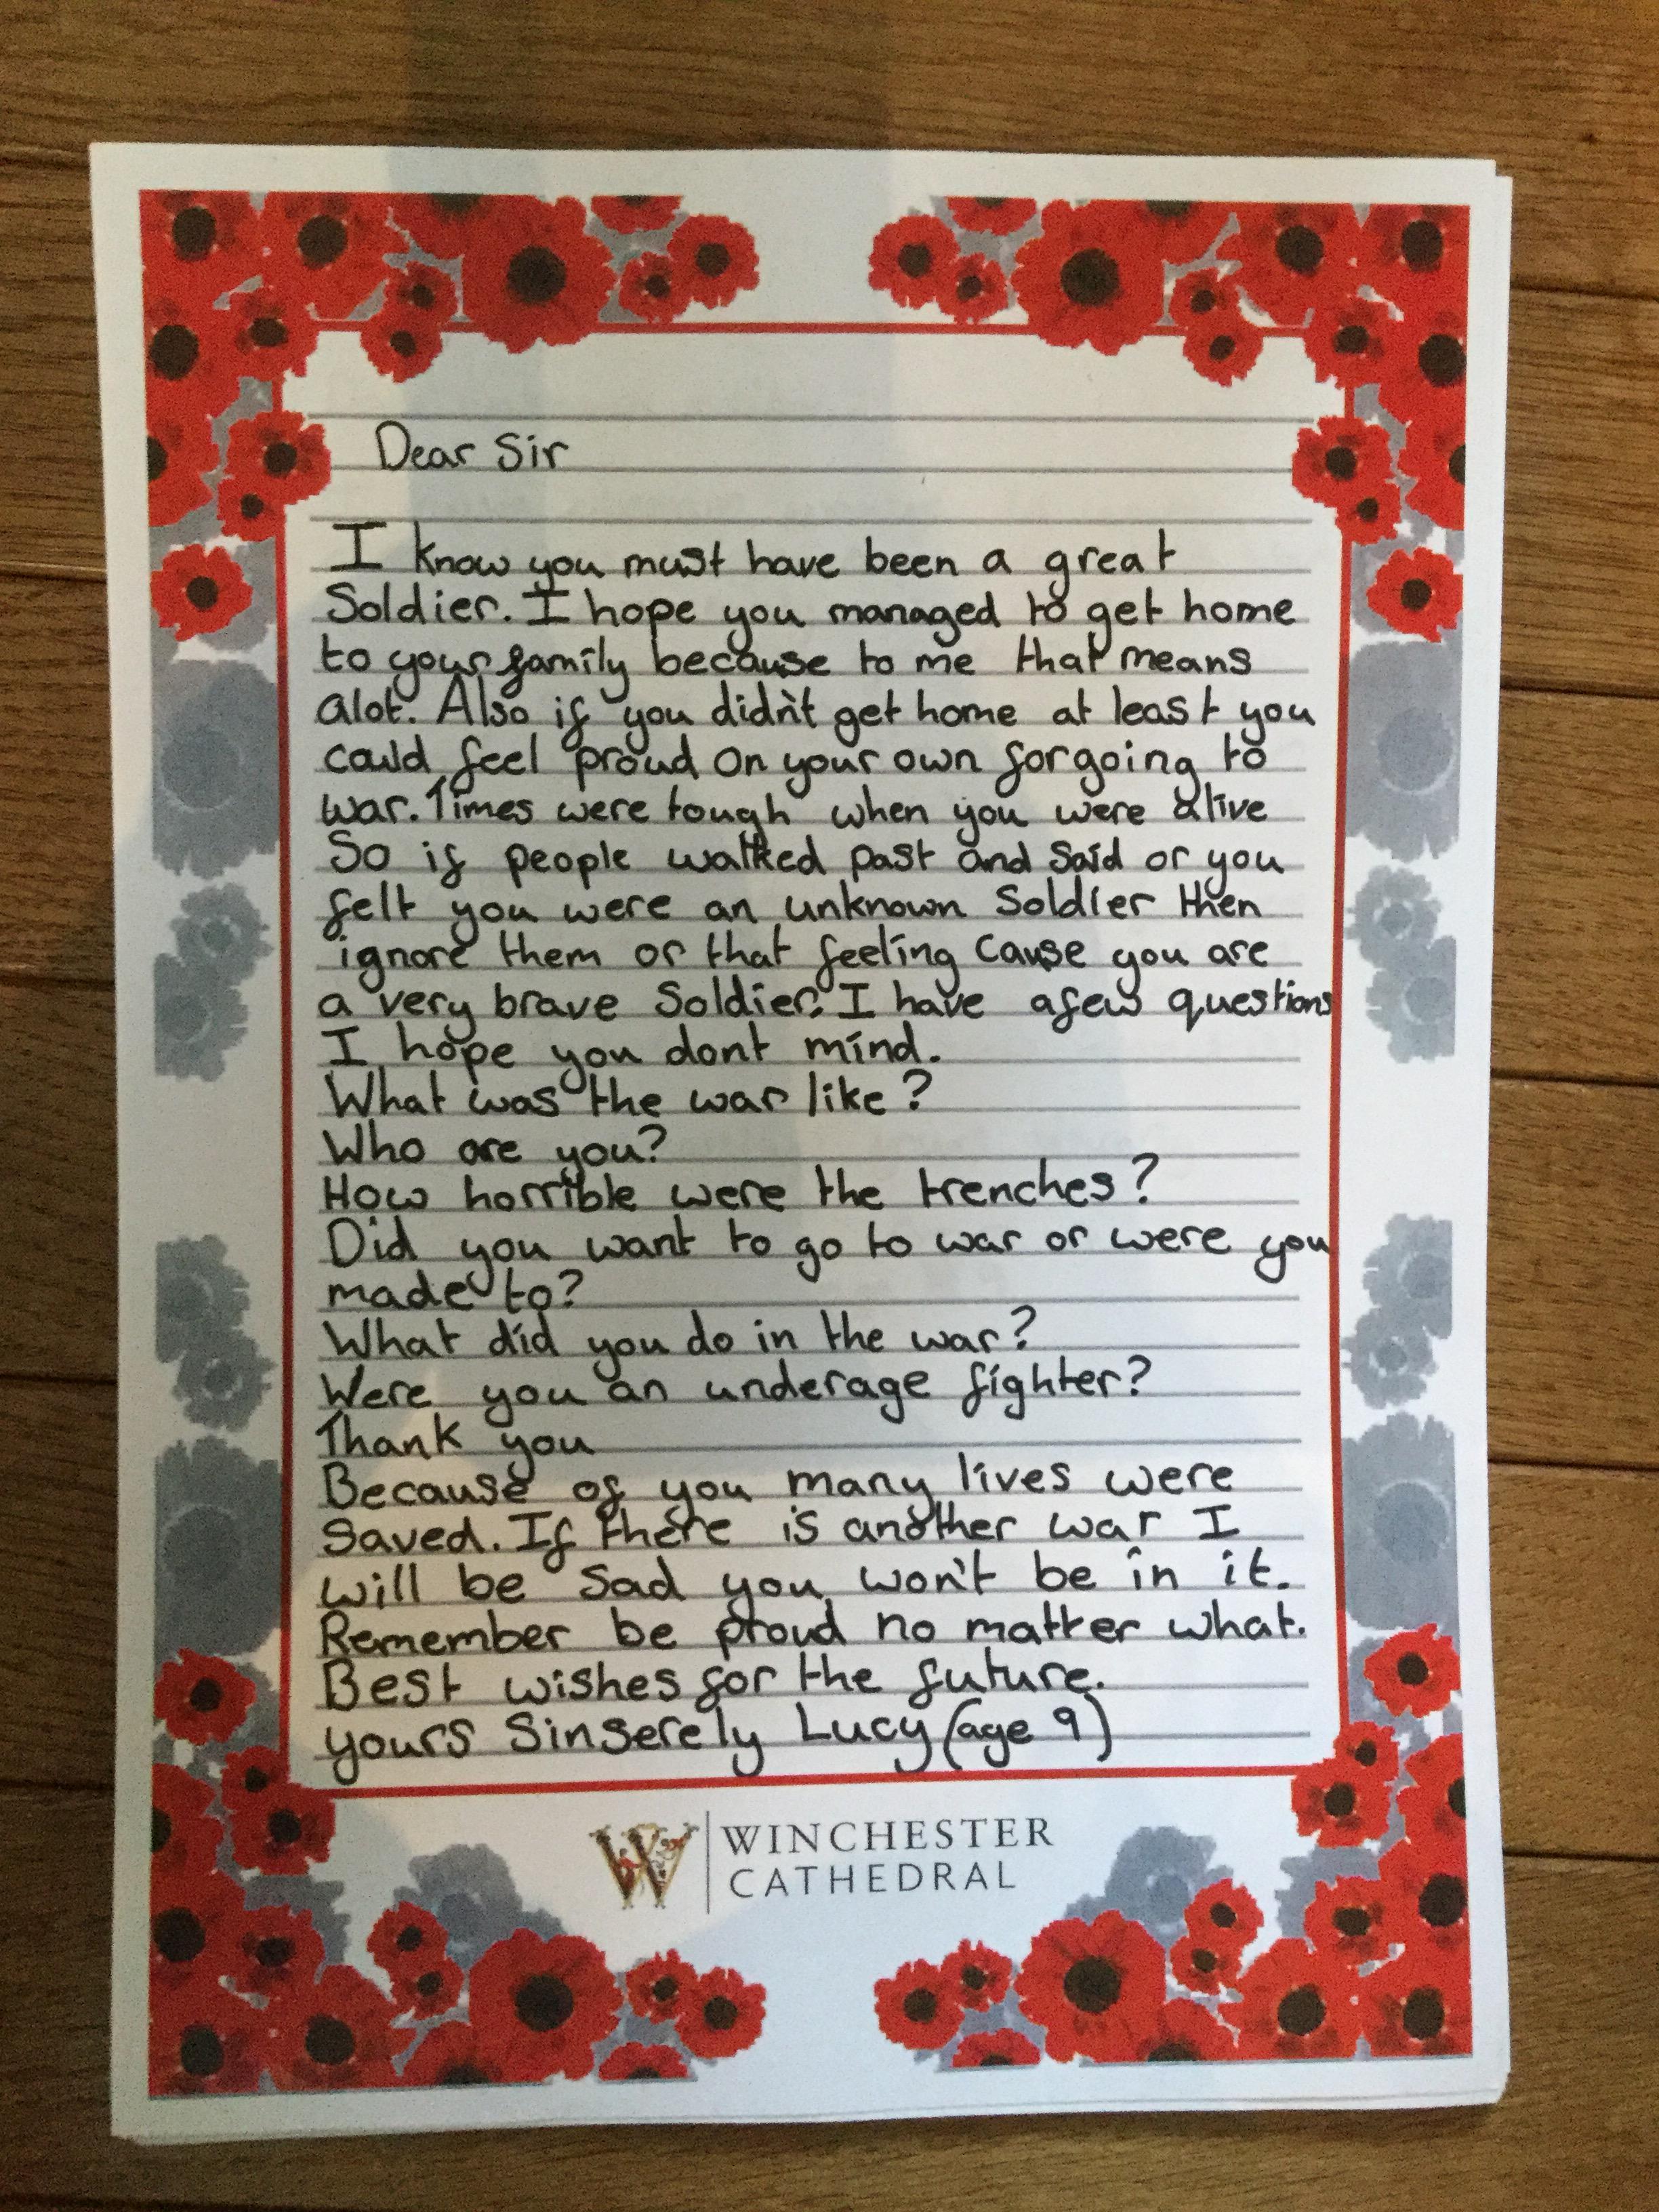 Dear Sir
I know you must have been a great
Soldier. I hope you managed to get home
to your family because to me that means
alot. Also if you didn't get home at least you
could feel proud on your own for going to
war. Times were tough when you were alive
So if people walked past and said or you
felt you were an unknown Soldier then
ignore them or that feeling cause you are
a very brave Soldier. I have afew questions
I hope you dont mind.
What was the war like?
Who are you?
How horrible were the trenches?
Did you want to go to war or were you
made to?
What did you do in the war?
Were you an underage fighter?
Thank you
Because of you many lives were
saved. If there is another war I
will be sad you won't be in it.
Remember be proud no matter what.
Best wishes for the future.
yours Sinserely Lucy (age 9)
W WINCHESTER
CATHEDRAL